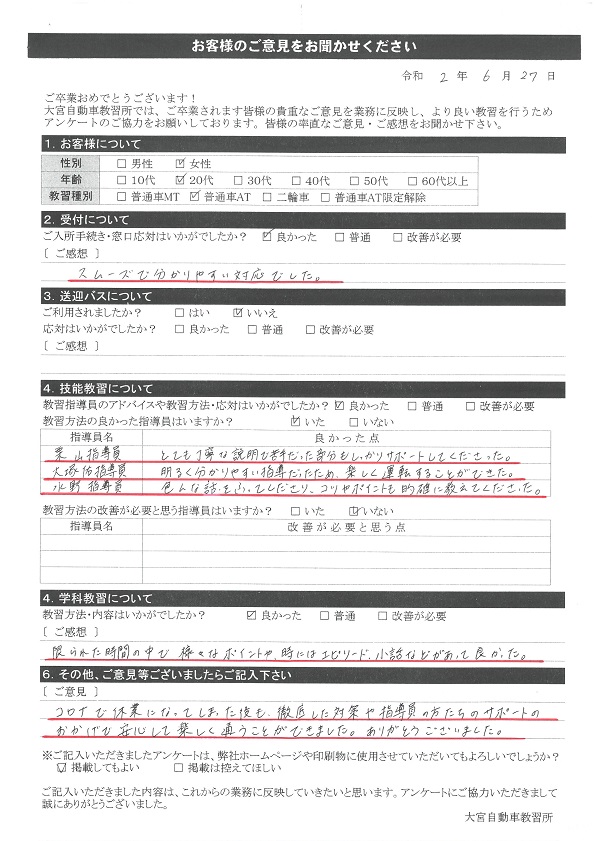 お客様のご意見をお聞かせください
令和 2 年 6 月 27 日
ご卒業おめでとうございます！
大宮自動車教習所では、ご卒業されます皆様の貴重なご意見を業務に反映し、より良い教習を行うため
アンケートのご協力をお願いしております。皆様の率直なご意見・ご感想をお聞かせ下さい。
1. お客様について
性別 □ 男性 ☑ 女性
年齢 □ 10代 ☑ 20代 □ 30代 □ 40代 □ 50代 □ 60代以上
教習種別 □ 普通車MT ☑ 普通車AT □ 二輪車 □ 普通車AT限定解除
2. 受付について
ご入所手続き・窓口応対はいかがでしたか？ ☑ 良かった □ 普通 □ 改善が必要
［ ご感想 ］
スムーズで分かりやすい対応でした。
3. 送迎バスについて
ご利用されましたか？ □ はい ☑ いいえ
応対はいかがでしたか？ □ 良かった □ 普通 □ 改善が必要
［ ご感想 ］
4. 技能教習について
教習指導員のアドバイスや教習方法・応対はいかがでしたか？ ☑ 良かった □ 普通 □ 改善が必要
教習方法の良かった指導員はいますか？ ☑ いた □ いない
指導員名 良かった点
栗山指導員 とても丁寧な説明で苦手だった部分もしっかりサポートしてくださった。
大塚佑指導員 明るく分かりやすい指導だったため、楽しく運転することができた。
水野指導員 色んな話をふってくださり、コツやポイントも的確に教えてくださった。
教習方法の改善が必要と思う指導員はいますか？ □ いた ☑ いない
指導員名 改善が必要と思う点
4. 学科教習について
教習方法・内容はいかがでしたか？ ☑ 良かった □ 普通 □ 改善が必要
［ ご感想 ］
限られた時間の中で様々なポイントや、時にはエピソード、小話などがあって良かった。
6. その他、ご意見等ございましたらご記入下さい
［ ご意見 ］
コロナで休業になってしまった後も、徹底した対策や指導員の方たちのサポートの
おかげで安心して楽しく通うことができました。ありがとうございました。
※ご記入いただきましたアンケートは、弊社ホームページや印刷物に使用させていただいてもよろしいでしょうか？
☑ 掲載してもよい □ 掲載は控えてほしい
ご記入いただきました内容は、これからの業務に反映していきたいと思います。アンケートにご協力いただきまして
誠にありがとうございました。
大宮自動車教習所